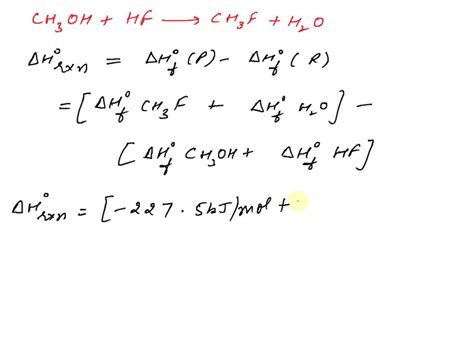 CH₃OH + HF ⟶ CH₃F + H₂O
ΔH°rxn = ΔH°f (P) − ΔH°f (R)
= [ΔH°f CH₃F + ΔH°f H₂O] −
[ΔH°f CH₃OH + ΔH°f HF]
ΔH°rxn = [−227.5 kJ/mol +